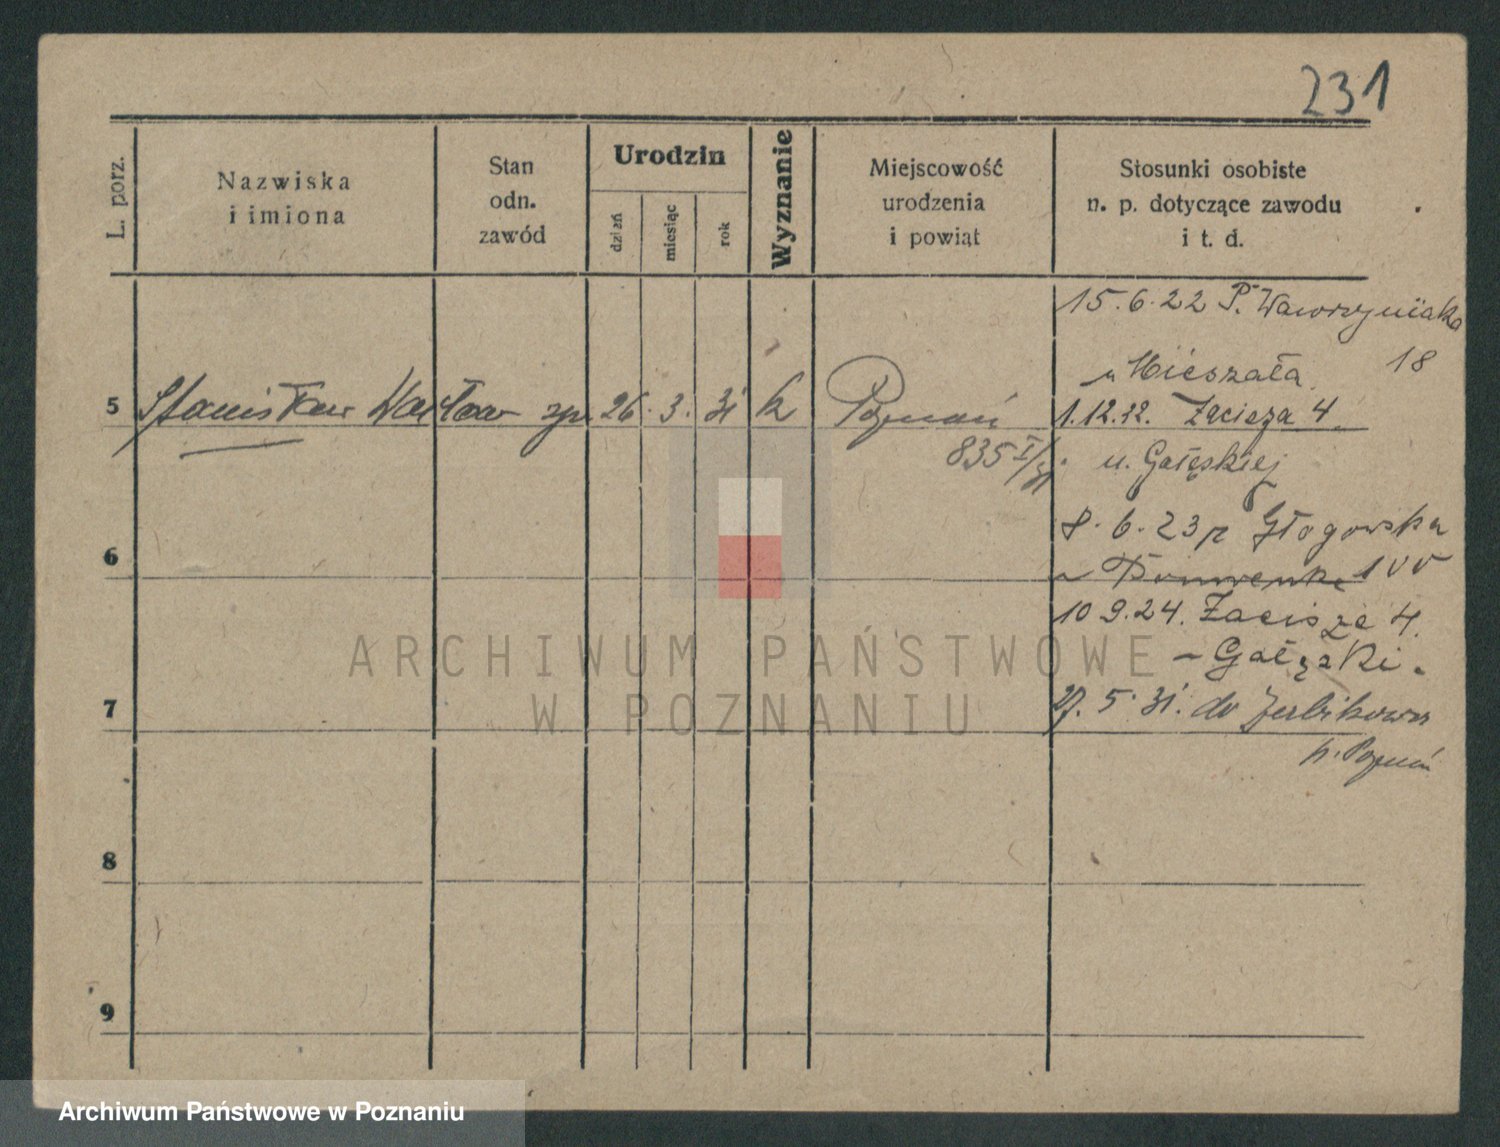 231
L. porz.
Nazwiska
i imiona
Stan
odn.
zawód
Urodzin
dzień
miesiąc
rok
Wyznanie
Miejscowość
urodzenia
i powiąt
Stosunki osobiste
n. p. dotyczące zawodu
i t. d.
15.6.22 P. Wawrzyniaka
18
u Mieszała
5 Stanisław Wacław 26. 3. 31 k Poznań 1.12.22. Zacisza 4.
835 I/31 u. Gałęskiej
8.6.23 Głogowska
6
100
10 9.24. Zacisze 4.
- Gałęzki.
7 27. 5. 31. do Żerbikowa
p. Poznań
8
9
ARCHIWUM PAŃSTWOWE
W POZNANIU
Archiwum Państwowe w Poznaniu